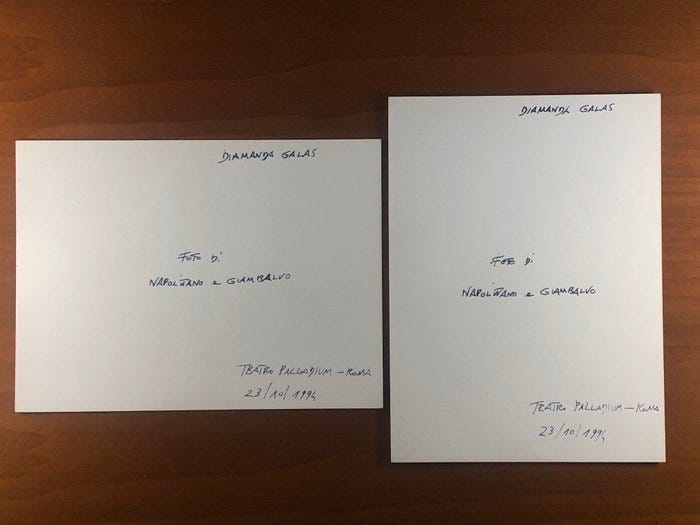 DIAMANDA GALAS
FOTO Di
NAPOLITANO e GIAMBALVO
TEATRO PALLADIUM - ROMA
23/10/1994
DIAMANDA GALAS
FOTO Di
NAPOLITANO e GIAMBALVO
TEATRO PALLADIUM - ROMA
23/10/1994